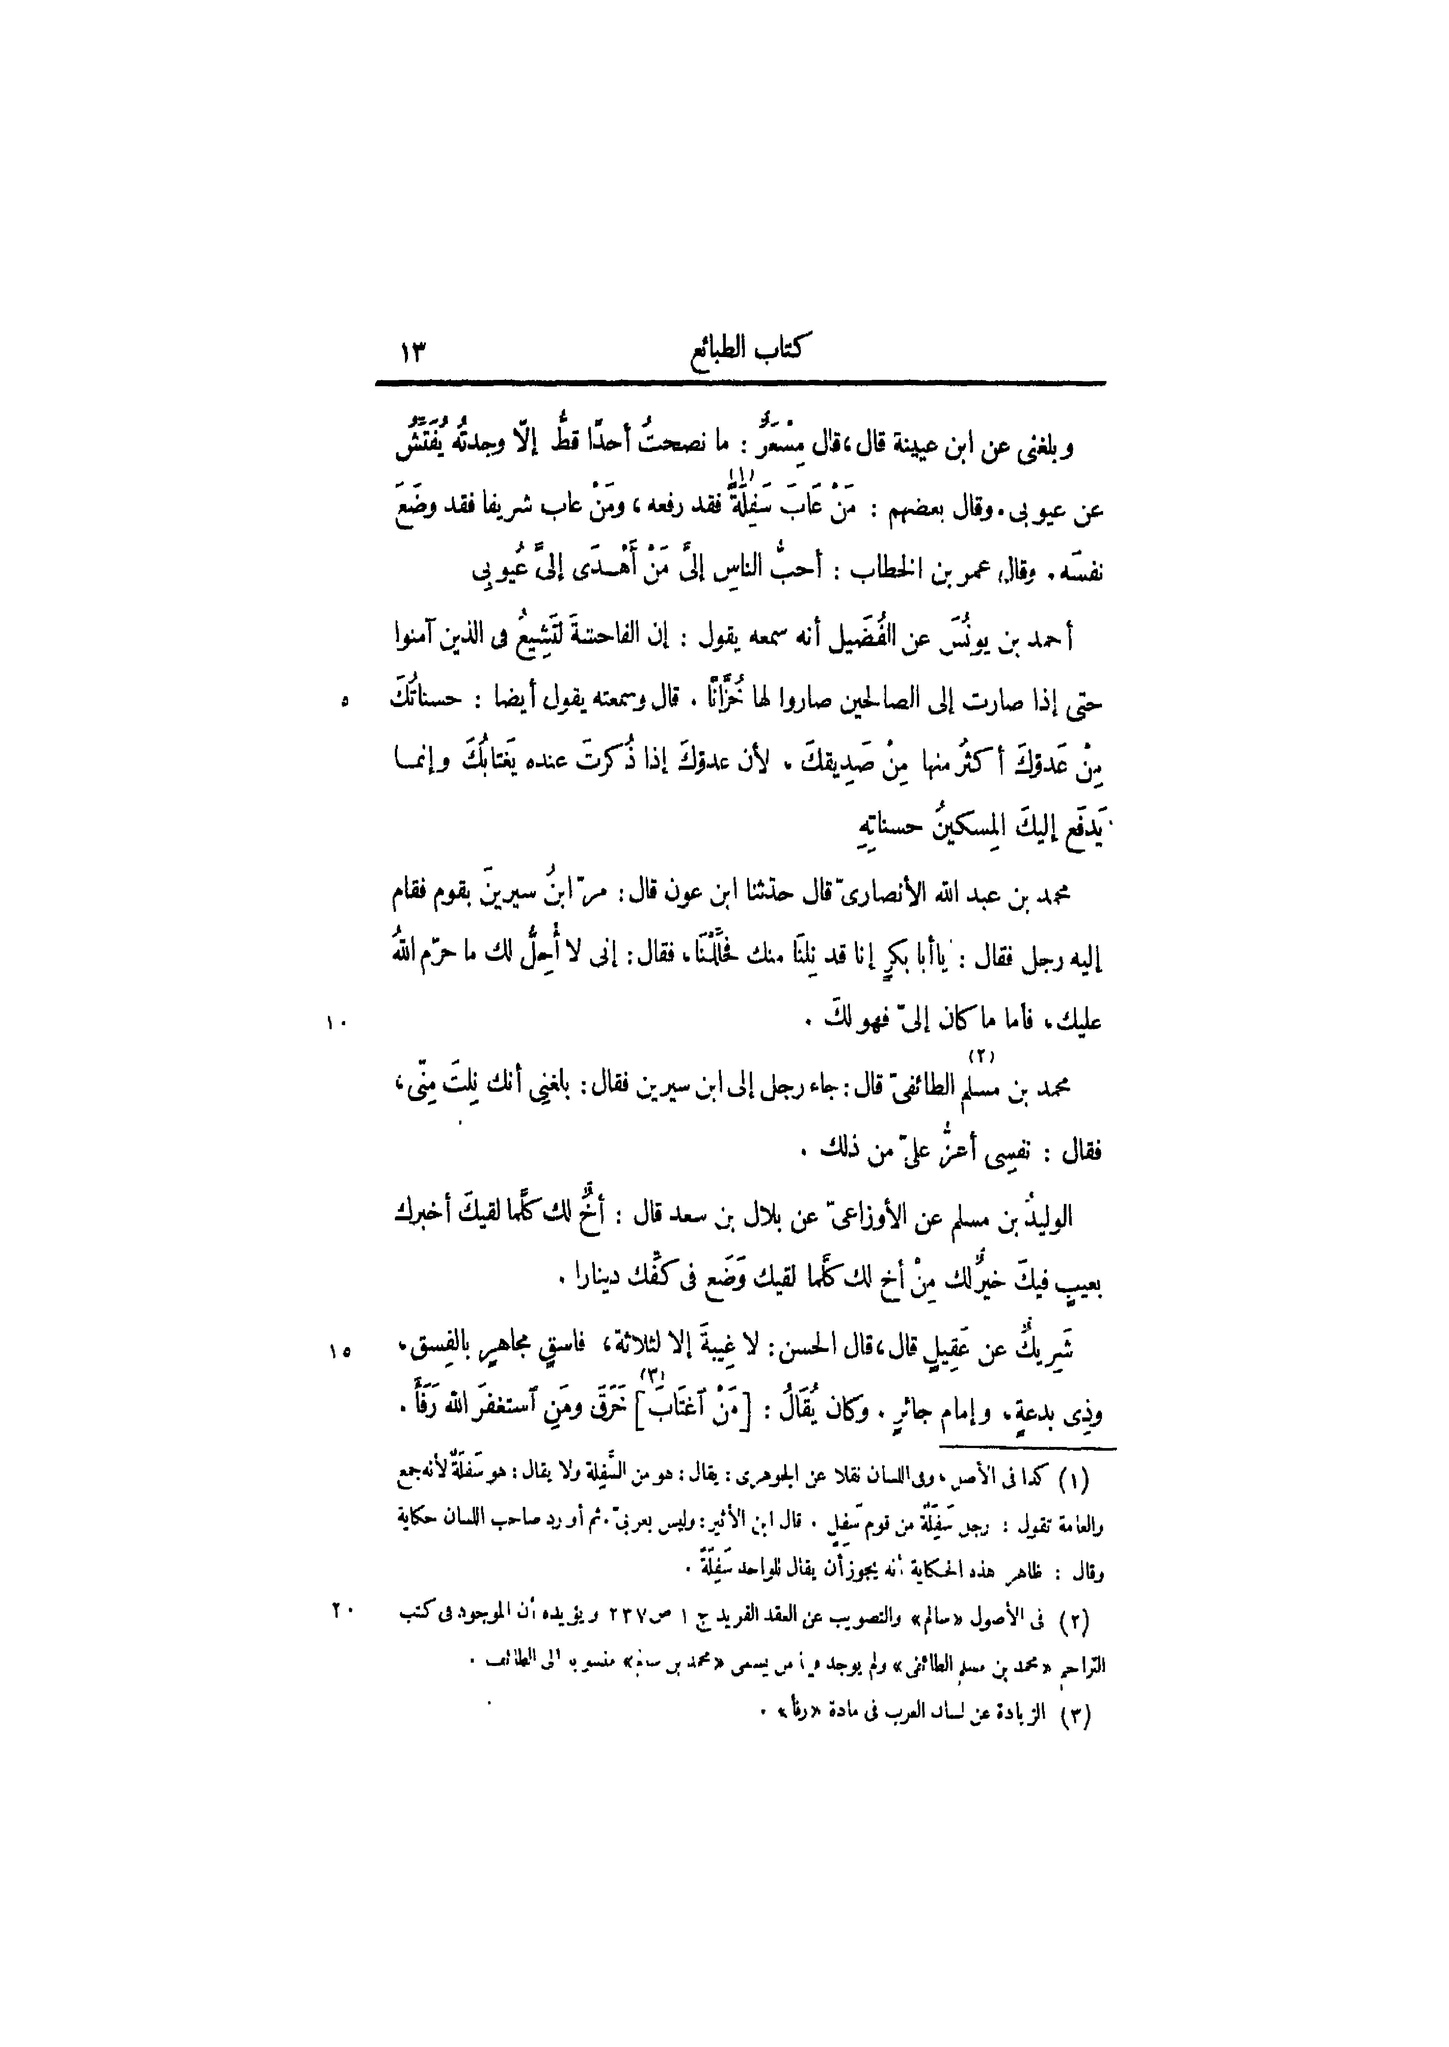 كتاب الطبائع ١٣
وبلغنى عن ابن عيينة قال، قال مِسْعَرٌ : ما نصحتُ أحدًا قطُّ إلّا وجدتُه يُفَتِّشُ
عن عيوبى . وقال بعضهم : مَنْ عَابَ سَفِلَةً (١) فقد رفعه، ومَنْ عاب شريفا فقد وضَعَ
نفسَه . وقال عمر بن الخطاب : أحبُّ الناسِ إلىَّ مَنْ أَهْدَى إلىَّ عُيوبِى
أحمد بن يونُسَ عن الفُضَيل أنه سمعه يقول : إن الفاحشةَ لَتَشِيعُ فى الذين آمنوا
حتى إذا صارت إلى الصالحين صاروا لها خُزَّانًا . قال وسمعته يقول أيضا : حسناتُكَ ٥
مِنْ عَدوّكَ أكثرُ منها مِنْ صَدِيقكَ، لأن عدوّكَ إذا ذُكرتَ عنده يَغتابُكَ وإنمـا
يَدفَع إليكَ المِسكينُ حسناتِهِ
محمد بن عبد الله الأنصارىّ قال حدّثنا ابن عون قال: مرّ ابنُ سيرينَ بقوم فقام
إليه رجل فقال : يا أبا بكرٍ إنا قد نِلنَا منك فحَلِّلْنَا، فقال: إنى لا أُحِلُّ لك ما حرّم اللهُ
عليك، فأما ما كان إلىّ فهو لكَ . ١٠
محمد بن مسلم (٢) الطائفىّ قال: جاء رجل إلى ابن سيرين فقال: بلغنِى أنك نِلتَ مِنّى،
فقال : نفسِى أعزُّ علىّ من ذلك .
الوليدُ بن مسلم عن الأوزاعىّ عن بلال بن سعد قال : أخٌ لك كلَّما لقيكَ أخبرك
بعيبٍ فيكَ خيرٌ لك مِنْ أخ لك كلَّما لقيك وَضَع فى كفّك دينارا .
شَرِيكٌ عن عَقِيلٍ قال، قال الحسن: لا غِيبةَ إلا لثلاثة، فاسقٍ مجاهرٍ بالفِسق، ١٥
وذِى بدعةٍ، وإمام جائرٍ . وكان يُقَالُ : [مَنْ اغتَابَ] (٣) خَرَقَ ومَنِ استغفرَ الله رَفَأَ .
(١) كذا فى الأصل، وفى اللسان نقلا عن الجوهرى : يقال: هو من السَّفِلة ولا يقال: هو سَفِلَةٌ لأنه جمع
والعامة تقول : رجل سَفِلَةٌ من قوم سَفِلٍ . قال ابن الأثير: وليس بعربىّ. ثم أورد صاحب اللسان حكاية
وقال : ظاهر هذه الحكاية أنه يجوز أن يقال للواحد سَفِلَةٌ .
(٢) فى الأصول «سالم» والتصويب عن العقد الفريد ج ١ ص ٢٣٧ ويؤيده أن الموجود فى كتب ٢٠
التراجم «محمد بن مسلم الطائفى» ولم يوجد فيها من يسمى «محمد بن سالم» منسوبا الى الطائف .
(٣) الزيادة عن لسان العرب فى مادة «رفأ» .